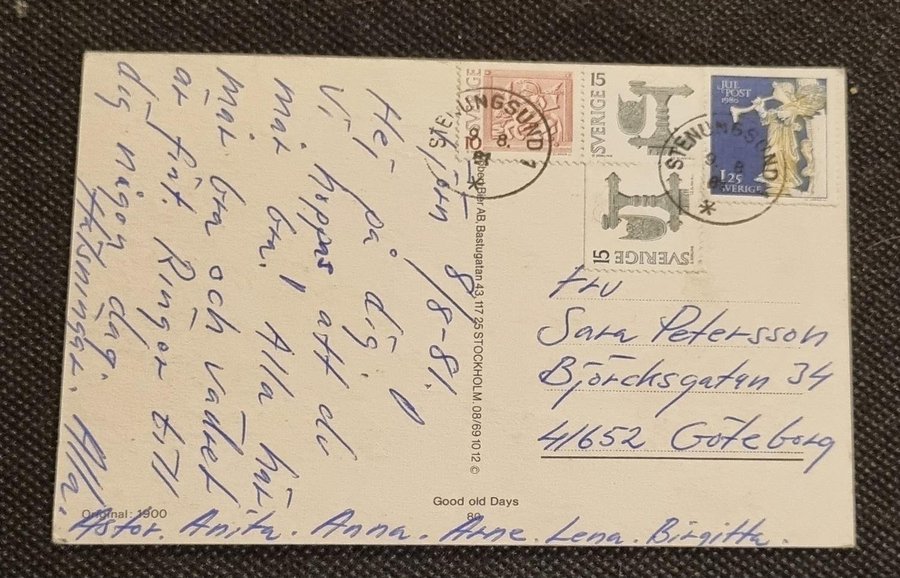 Tjörn 8/8-81.
Hej på dig.
Vi hoppas att du
mår bra! Alla här
mår bra och vädret
är fint. Ringer till
dig någon dag.
Hälsningar. Alla.
Astor. Anita. Anna. Arne. Lena. Birgitta.
Bier AB, Bastugatan 43, 117 25 STOCKHOLM. 08/69 10 12 ©
SVERIGE 10
STENUNGSUND 1
9. 8. 81
SVERIGE 15
SVERIGE 15
JUL
POST
1980
1.25
SVERIGE
STENUNGSUND
9. 8.
Fru
Sara Petersson
Björcksgatan 34
41652 Göteborg
Good old Days
Original: 1900